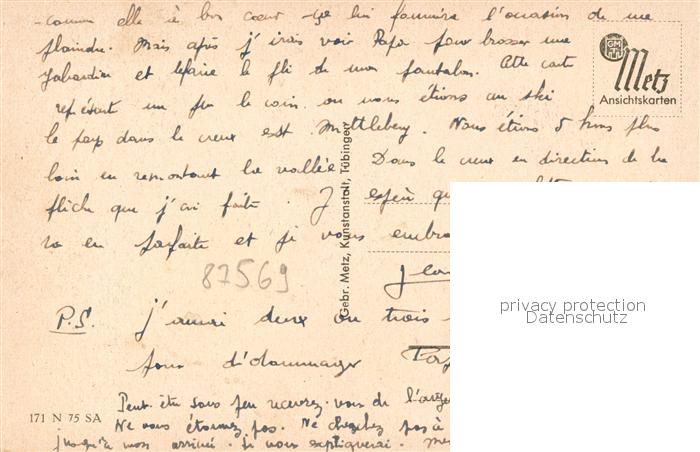 comme elle a bon cœur ça lui fournira l'occasion de me
plaindre. Mais après j'irais voir Papa pour brosser une
gabardine et refaire le pli de mon pantalon. Cette carte
représent un peu le coin où nous étions au ski
le pays dans le creux est Mittleberg. Nous étions 5 kms plus
loin en remontant la vallée Dans le creux en direction de la
flèche que j'ai faite. J'espère
va en parfaite et je vous embra
87569
P.S. j'aurai deux ou trois
pour
Peut-être sous peu recevrez-vous de l'argen
Ne vous étonnez pas. Ne cherchez pas à
jusqu'à mon arrivée. Je vous expliquerai.
171 N 75 SA
Gebr. Metz, Kunstanstalt, Tübingen
GM
Metz
Ansichtskarten
privacy protection
Datenschutz